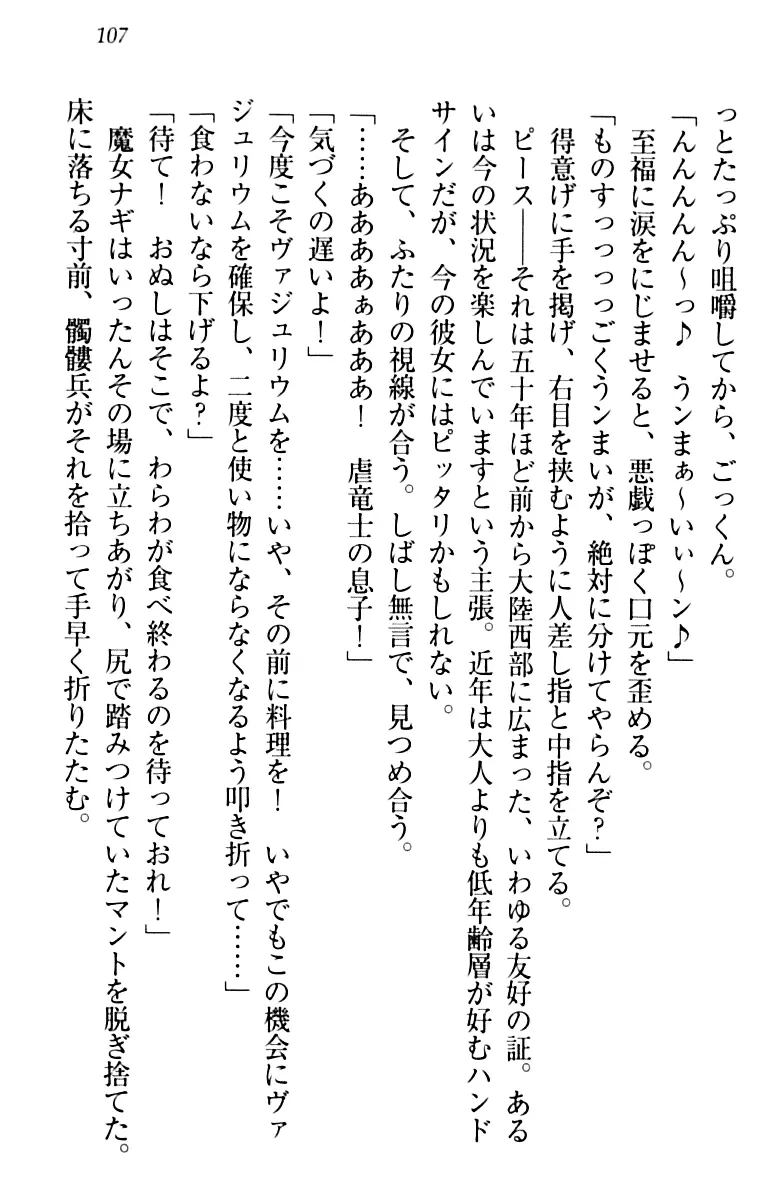 107
っとたっぷり咀嚼してから、ごっくん。
「んんんんん～っ♪　うンまぁ～いぃ～ン♪」
至福に涙をにじませると、悪戯っぽく口元を歪める。
「ものすっっっっごくうンまいが、絶対に分けてやらんぞ？」
得意げに手を掲げ、右目を挟むように人差し指と中指を立てる。
ピース――それは五十年ほど前から大陸西部に広まった、いわゆる友好の証。ある
いは今の状況を楽しんでいますという主張。近年は大人よりも低年齢層が好むハンド
サインだが、今の彼女にはピッタリかもしれない。
そして、ふたりの視線が合う。しばし無言で、見つめ合う。
「……ああああぁあああ！　虐竜士の息子！」
「気づくの遅いよ！」
「今度こそヴァジュリウムを……いや、その前に料理を！　いやでもこの機会にヴァ
ジュリウムを確保し、二度と使い物にならなくなるよう叩き折って……」
「食わないなら下げるよ？」
「待て！　おぬしはそこで、わらわが食べ終わるのを待っておれ！」
魔女ナギはいったんその場に立ちあがり、尻で踏みつけていたマントを脱ぎ捨てた。
床に落ちる寸前、髑髏兵がそれを拾って手早く折りたたむ。